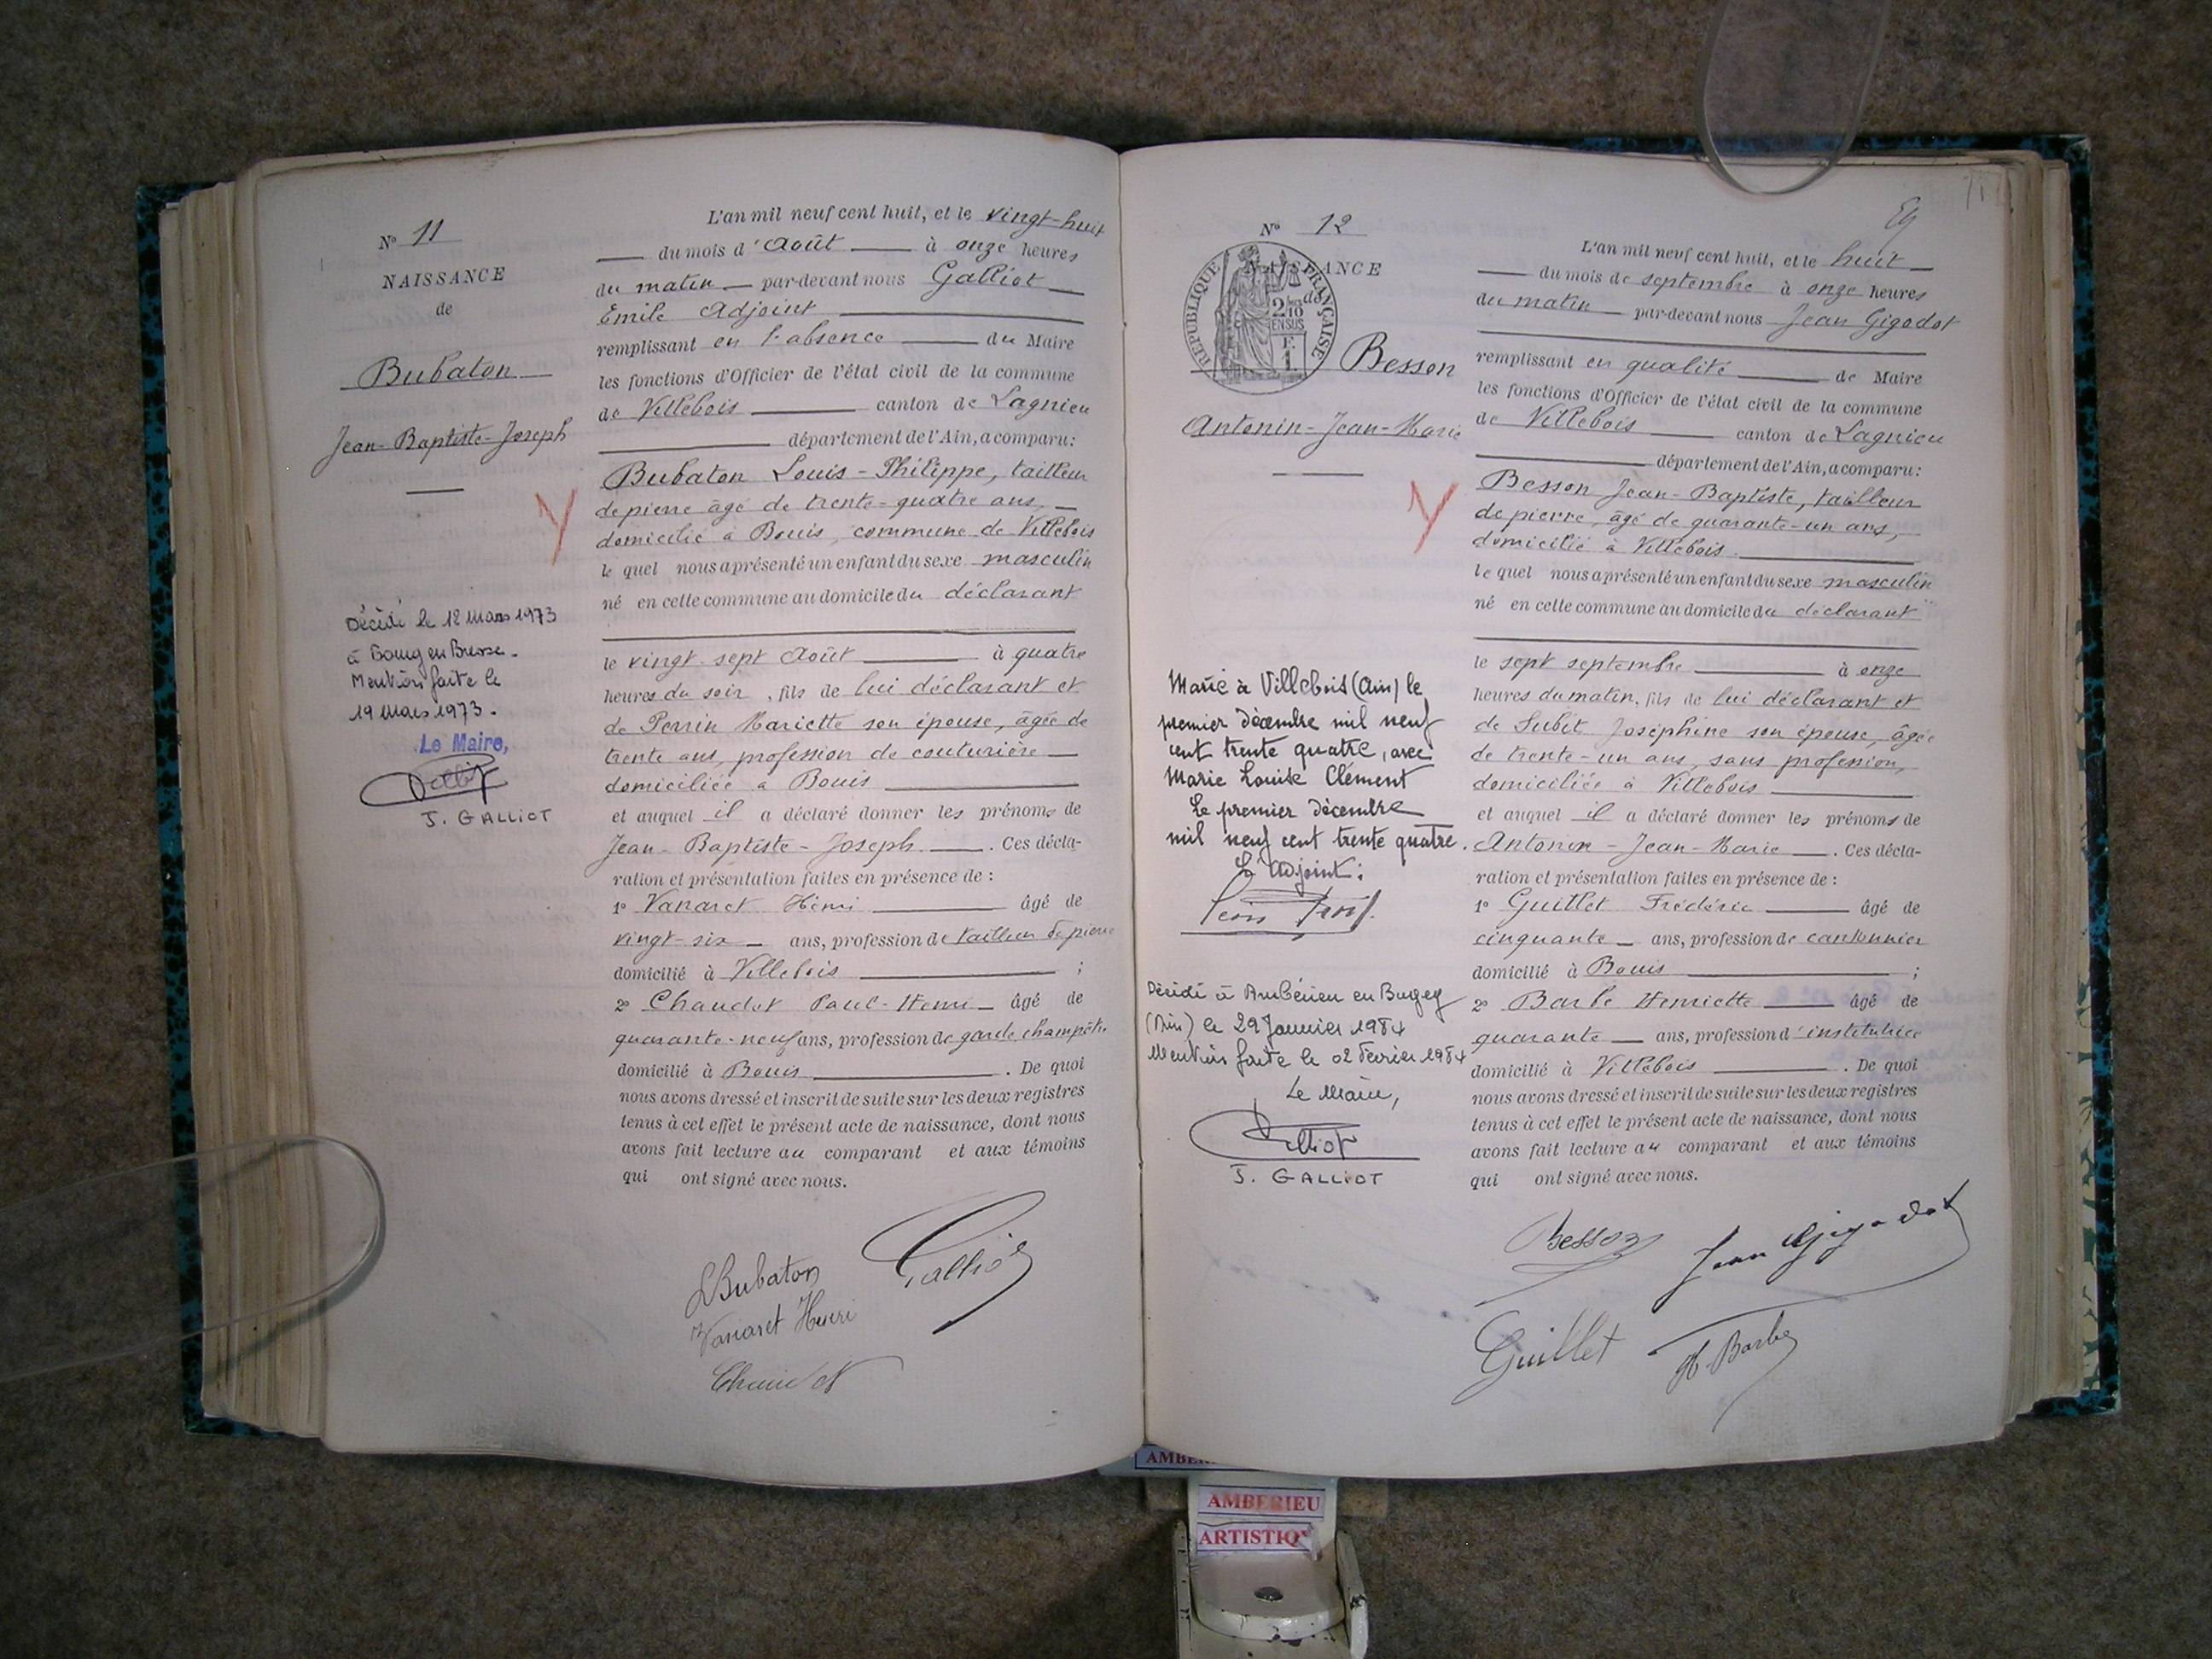 N° 11
NAISSANCE
de
Bubaton
Jean-Baptiste-Joseph
Décédé le 12 Mars 1973
à Bourg en Bresse.
Mention faite le
19 Mars 1973.
Le Maire,
J. GALLIOT
L'an mil neuf cent huit, et le vingt-huit
du mois d'Août à onze heures
du matin par-devant nous Galliot
Emile Adjoint
remplissant en l'absence du Maire
les fonctions d'Officier de l'état civil de la commune
de Villebois canton de Lagnieu
département de l'Ain, a comparu:
Bubaton Louis-Philippe, tailleur
de pierre âgé de trente-quatre ans,
domicilié à Bouis, commune de Villebois
lequel nous a présenté un enfant du sexe masculin
né en cette commune au domicile du déclarant
le vingt-sept Août à quatre
heures du soir, fils de lui déclarant et
de Perrin Mariette son épouse, âgée de
trente ans, profession de couturière
domiciliée à Bouis
et auquel il a déclaré donner les prénoms de
Jean-Baptiste-Joseph. Ces décla-
ration et présentation faites en présence de :
1° Vanaret Henri âgé de
vingt-six ans, profession de tailleur de pierre
domicilié à Villebois ;
2° Chaudet Paul-Henri âgé de
quarante-neuf ans, profession de garde champêtre
domicilié à Bouis. De quoi
nous avons dressé et inscrit de suite sur les deux registres
tenus à cet effet le présent acte de naissance, dont nous
avons fait lecture au comparant et aux témoins
qui ont signé avec nous.
LBubaton Galliot
Vanaret Henri
Chaudet
N° 12
NAISSANCE
de
RÉPUBLIQUE FRANÇAISE
2/10 EN SUS
F. 1
Besson
Antonin-Jean-Marie
Marié à Villebois (Ain) le
premier décembre mil neuf
cent trente quatre, avec
Marie Louise Clément
Le premier décembre
mil neuf cent trente quatre.
L'adjoint:
Décédé à Ambérieu en Bugey
(Ain) le 29 Janvier 1984
Mention faite le 02 Février 1984
Le Maire,
Galliot
J. GALLIOT
L'an mil neuf cent huit, et le huit
du mois de septembre à onze heures
du matin par-devant nous Jean Gigodot
remplissant en qualité de Maire
les fonctions d'Officier de l'état civil de la commune
de Villebois canton de Lagnieu
département de l'Ain, a comparu:
Besson Jean-Baptiste, tailleur
de pierre, âgé de quarante-un ans,
domicilié à Villebois
lequel nous a présenté un enfant du sexe masculin
né en cette commune au domicile du déclarant
le sept septembre à onze
heures du matin, fils de lui déclarant et
de Subit Joséphine son épouse, âgée
de trente-un ans, sans profession,
domiciliée à Villebois
et auquel il a déclaré donner les prénoms de
Antonin-Jean-Marie. Ces décla-
ration et présentation faites en présence de :
1° Guillet Frédéric âgé de
cinquante ans, profession de cantonnier
domicilié à Bouis ;
2° Barbe Henriette âgé de
quarante ans, profession d'institutrice
domicilié à Villebois. De quoi
nous avons dressé et inscrit de suite sur les deux registres
tenus à cet effet le présent acte de naissance, dont nous
avons fait lecture au comparant et aux témoins
qui ont signé avec nous.
Besson Jean Gigodot
Guillet H. Barbe
AMBERIEU
ARTISTIQ